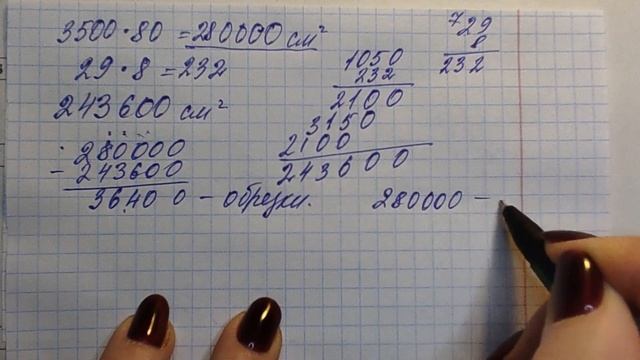 3500·80 = 280000 см²
29·8 = 232
243600 см²
280000
- 243600
36400 - обрезки.
1050
232
2100
3150
2100
243600
7
29
8
232
280000 -